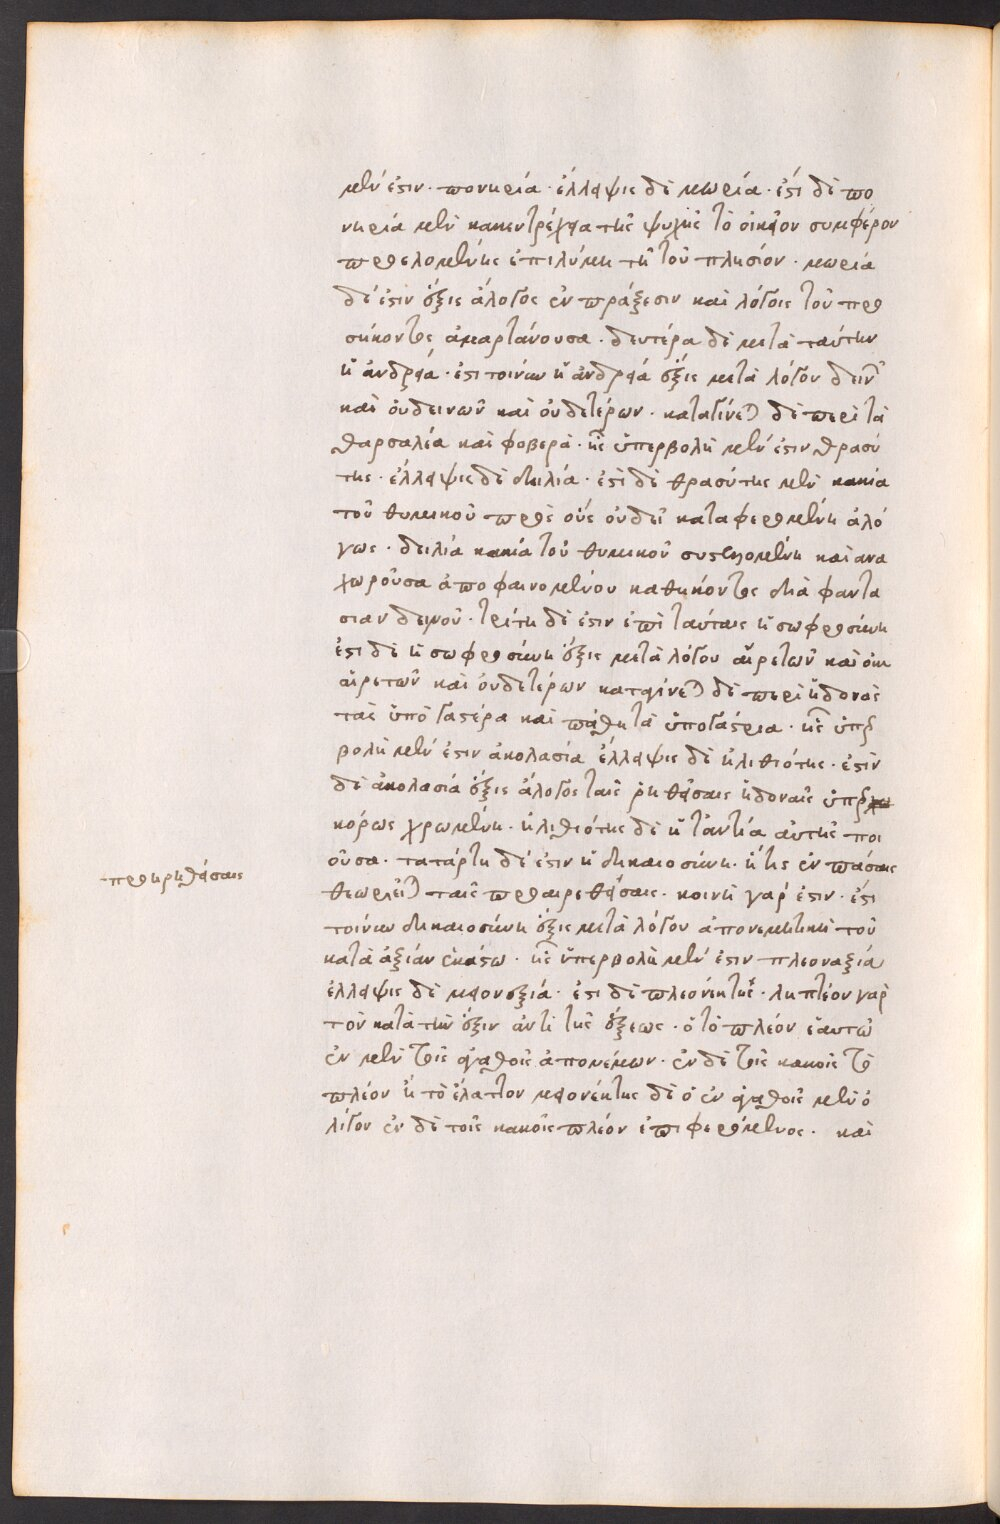 μέν ἐστιν· πονηρία· ἔλλειψις δὲ μωρία· ἔστι δὲ πο
νηρία μὲν κακεντρέχεια τῆς ψυχῆς τὸ οἰκεῖον συμφέρον
προελομένης ἐπιλύμη τῆ τοῦ πλησίον· μωρία
δέ ἐστιν ἕξις ἄλογος ἐν πράξεσιν καὶ λόγοις τοῦ προ
σήκοντος ἁμαρτάνουσα· δευτέρα δὲ μετὰ ταύτην
ἡ ἀνδρεία· ἔστι τοίνυν ἡ ἀνδρεία ἕξις μετὰ λόγου δεινῶν
καὶ οὐδεινῶν καὶ οὐδετέρων· καταγίνεται δὲ περὶ τὰ
θαρσαλέα καὶ φοβερά· ἧς ὑπερβολὴ μέν ἐστιν θρασύ
της· ἔλλειψις δὲ δειλία· ἔστι δὲ θρασύτης μὲν κακία
τοῦ θυμικοῦ πρὸς οὓς οὐδεῖ καταφερομένη ἀλό
γως· δειλία κακία τοῦ θυμικοῦ συστελλομένη καὶ ανα
χωροῦσα ἀπο φαινομένου καθήκοντος διὰ φαντα
σιαν δεινοῦ· τρίτη δέ ἐστιν ἐπὶ ταύταις ἡ σωφροσύνη
ἔστι δὲ ἡ σωφροσύνη ἕξις μετὰ λόγου αἱρετῶν καὶ οὐχ
αἱρετῶν καὶ οὐδετέρων καταγίνεται δὲ περὶ ἡδονὰς
τὰς ὑπὸ γαστέρα καὶ πάθη τὰ ὑπογάστρια· ἧς ὑπερ
βολὴ μέν ἐστιν ἀκολασία ἔλλειψις δὲ ἠλιθιότης· ἔστιν
δὲ ἀκολασία ἕξις ἄλογος ταῖς ῥηθείσαις ἡδοναῖς ὑπερ
κόρως χρωμένη· ἠλιθιότης δὲ ἡ τἀντία αὐτῆς ποι
οῦσα· τατάρτη δέ ἐστιν ἡ δικαιοσύνη· ἥτις ἐν πάσαις
θεωρεῖται ταῖς προαιρεθείσαις· κοινὴ γάρ ἐστιν· ἔστι
τοίνυν δικαιοσύνη ἕξις μετὰ λόγου ἀπονεμητικὴ τοῦ
κατὰ ἀξίαν ἑκάστω· ἧς ὑπερβολὴ μέν ἐστιν πλεοναξιά
ἔλλειψις δὲ μειονεξία· ἔστι δὲ πλεονέκτης· ληπτέον γὰρ
τὸν κατὰ τὴν ἕξιν ἀντὶ τῆς ἕξεως· ὁ τὸ πλέον ἑαυτῶ
ἐν μὲν τοῖς ἀγαθοῖς ἀπονέμων· ἐν δὲ τοῖς κακοῖς τὸ
πλέον ἢ τὸ ἔλαττον μειονέκτης δὲ ὁ ἐν ἀγαθοῖς μὲν ὀ
λίγον ἐν δὲ τοῖς κακοῖς πλέον ἐπιφερόμενος· καὶ
προηρηθείσαις